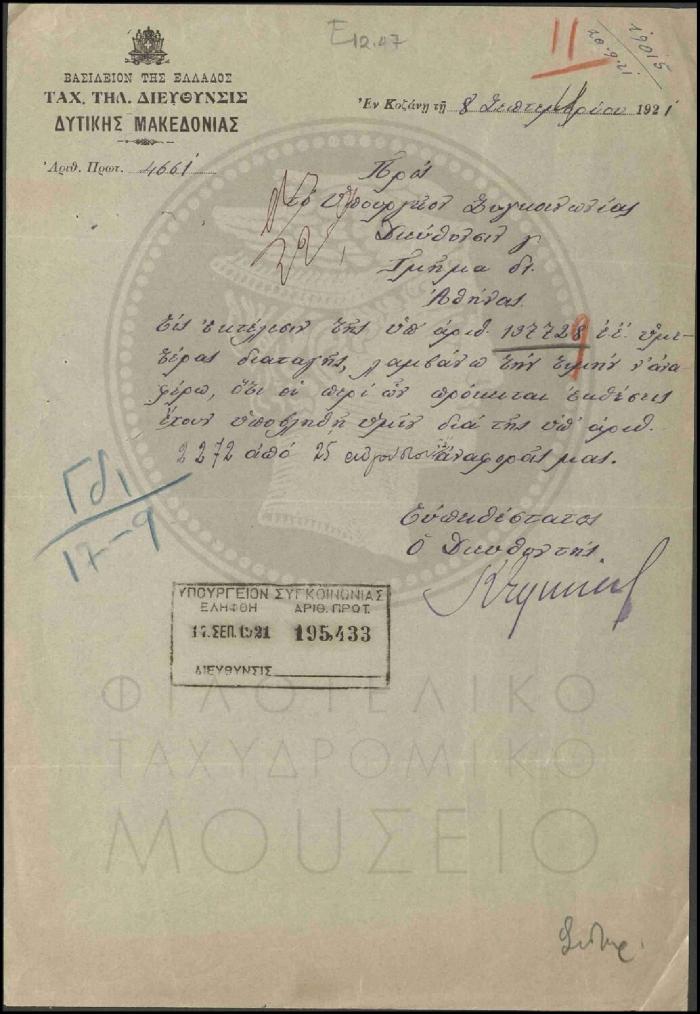 Ε12.07
11
19015
20.9.21
ΒΑΣΙΛΕΙΟΝ ΤΗΣ ΕΛΛΑΔΟΣ
ΤΑΧ. ΤΗΛ. ΔΙΕΥΘΥΝΣΙΣ
ΔΥΤΙΚΗΣ ΜΑΚΕΔΟΝΙΑΣ
Ἐν Κοζάνῃ τῇ 8 Σεπτεμβρίου 1921
Ἀριθ. Πρωτ. 4661
Πρός
τό Ὑπουργεῖον Συγκοινωνίας
Διεύθυνσιν γ
Τμῆμα δι.
Ἀθήνας
Εἰς ἐκτέλεσιν τῆς ὑπ' ἀριθ. 137728 ἐ.ἔ. ὑμε-
τέρας διαταγῆς, λαμβάνω τήν τιμήν ν' ἀνα-
φέρω, ὅτι αἱ περί ὧν πρόκειται ἐκθέσεις
ἔχουν ὑποβληθῆ ὑμῖν διά τῆς ὑπ' ἀριθ.
2272 ἀπό 25 αὐγούστου ἀναφορᾶς μας.
Γδι
17-9
Εὐπειθέστατος
Ὁ Διευθυντής
ΥΠΟΥΡΓΕΙΟΝ ΣΥΓΚΟΙΝΩΝΙΑΣ
ΕΛΗΦΘΗ ΑΡΙΘ. ΠΡΩΤ.
17. ΣΕΠ. 1921 195,433
ΔΙΕΥΘΥΝΣΙΣ
ΦΙΛΟΤΕΛΙΚΟ
ΤΑΧΥΔΡΟΜΙΚΟ
ΜΟΥΣΕΙΟ